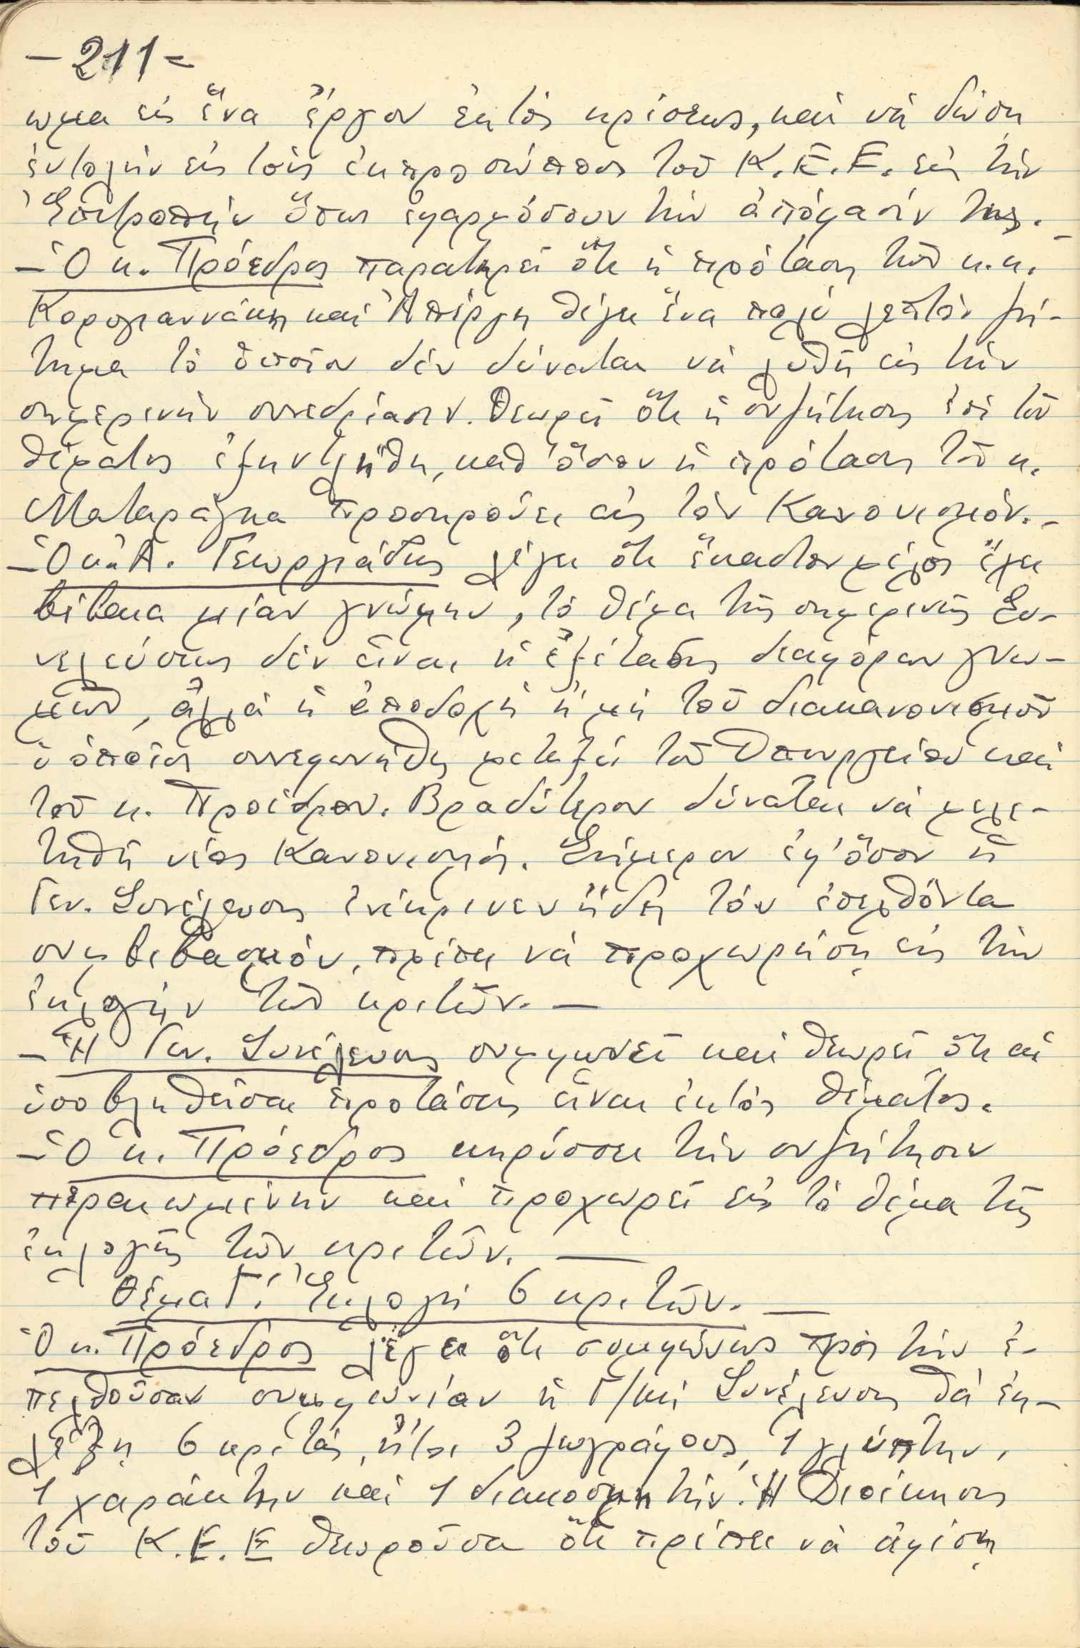 - 211 -
ωμα εἰς ἕνα ἔργον ἐκτὸς κρίσεως, καὶ νὰ δώση
ἐντολὴν εἰς τοὺς ἐκπροσώπους τοῦ Κ.Ε.Ε. εἰς τὴν
Ἐπιτροπὴν ὅπως ἐφαρμόσουν τὴν ἀπόφασίν της. -
- Ὁ κ. Πρόεδρος παρατηρεῖ ὅτι ἡ πρότασις τῶν κ.κ.
Κορογιαννάκη καὶ Ἀπέργη θίγει ἕνα πολὺ λεπτὸν ζή-
τημα τὸ ὁποῖον δὲν δύναται νὰ λυθῆ εἰς τὴν
σημερινὴν συνεδρίασιν. Θεωρεῖ ὅτι ἡ συζήτησις ἐπὶ τοῦ
θέματος ἐξηντλήθη, καθ' ὅσον ἡ πρότασις τοῦ κ.
Ματαράγκα προσκρούει εἰς τὸν Κανονισμόν. -
- Ὁ κ. Α. Γεωργιάδης λέγει ὅτι ἕκαστον μέλος ἔχει
βέβαια μίαν γνώμην, τὸ θέμα τῆς σημερινῆς Συ-
νελεύσεως δὲν εἶναι ἡ ἐξέτασις διαφόρων γνω-
μῶν, ἀλλὰ ἡ ἀποδοχὴ ἢ μὴ τοῦ διακανονισμοῦ
ὁ ὁποῖος συνεφωνήθη μεταξὺ τοῦ Ὑπουργείου καὶ
τοῦ κ. Προέδρου. Βραδύτερον δύναται νὰ μελε-
τηθῆ νέος Κανονισμός. Σήμερον ἐφ' ὅσον ἡ
Γεν. Συνέλευσις ἐνέκρινεν ἤδη τὸν ἐπελθόντα
συμβιβασμόν, πρέπει νὰ προχωρήση εἰς τὴν
ἐκλογὴν τῶν κριτῶν. -
- Ἡ Γεν. Συνέλευσις συμφωνεῖ καὶ θεωρεῖ ὅτι αἱ
ὑποβληθεῖσαι προτάσεις εἶναι ἐκτὸς θέματος.
- Ὁ κ. Πρόεδρος κηρύσσει τὴν συζήτησιν
περαιωμένην καὶ προχωρεῖ εἰς τὸ θέμα τῆς
ἐκλογῆς τῶν κριτῶν. -
Θέμα Γ'. Ἐκλογὴ 6 κριτῶν. -
Ὁ κ. Πρόεδρος λέγει ὅτι συμφώνως πρὸς τὴν ἐ-
πελθοῦσαν συμφωνίαν ἡ Γ/κὴ Συνέλευσις θὰ ἐκ-
λέξη 6 κριτάς, ἤτοι 3 ζωγράφους, 1 γλύπτην,
1 χαράκτην καὶ 1 διακοσμητήν. Ἡ Διοίκησις
τοῦ Κ.Ε.Ε θεωροῦσα ὅτι πρέπει νὰ ἀφίση